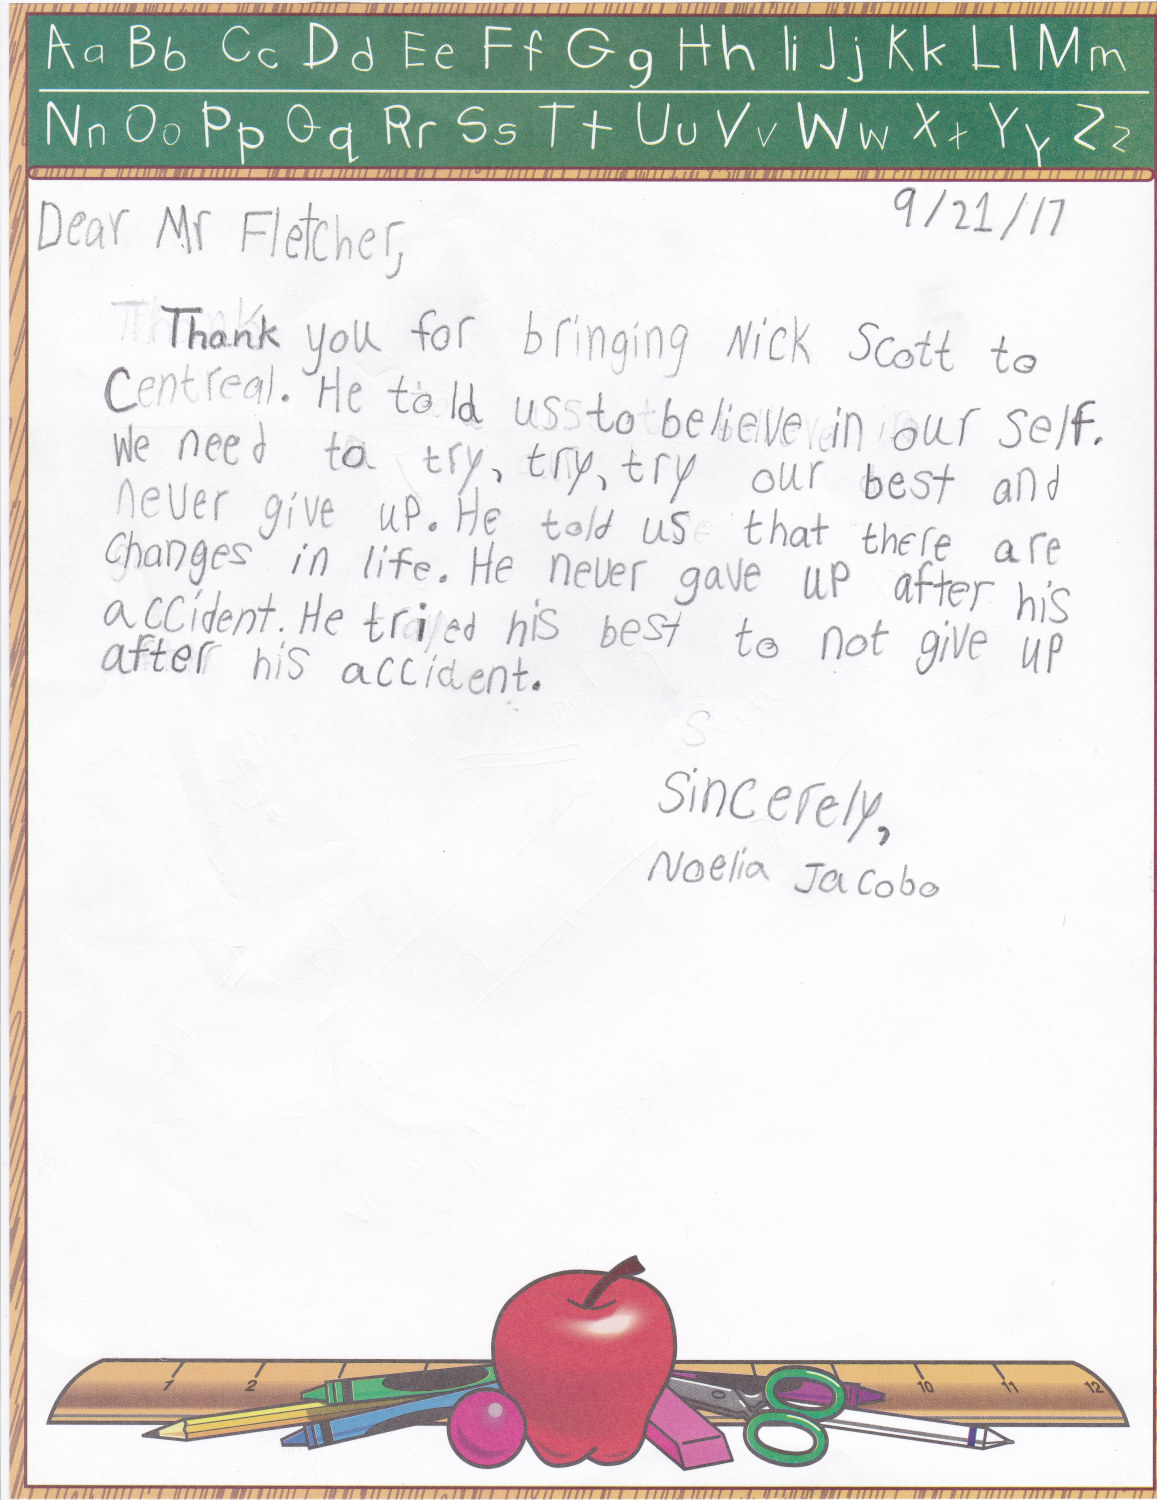 Aa Bb Cc Dd Ee Ff Gg Hh Ii Jj Kk Ll Mm
Nn Oo Pp Qq Rr Ss Tt Uu Vv Ww Xx Yy Zz
9/21/17
Dear Mr Fletcher,
Thank you for bringing Nick Scott to
Centreal. He told us to believe in our self.
We need to try, try, try our best and
never give up. He told us that there are
changes in life. He never gave up after his
accident. He tried his best to not give up
after his accident.
Sincerely,
Noelia Jacobo
1 2 10 11 12